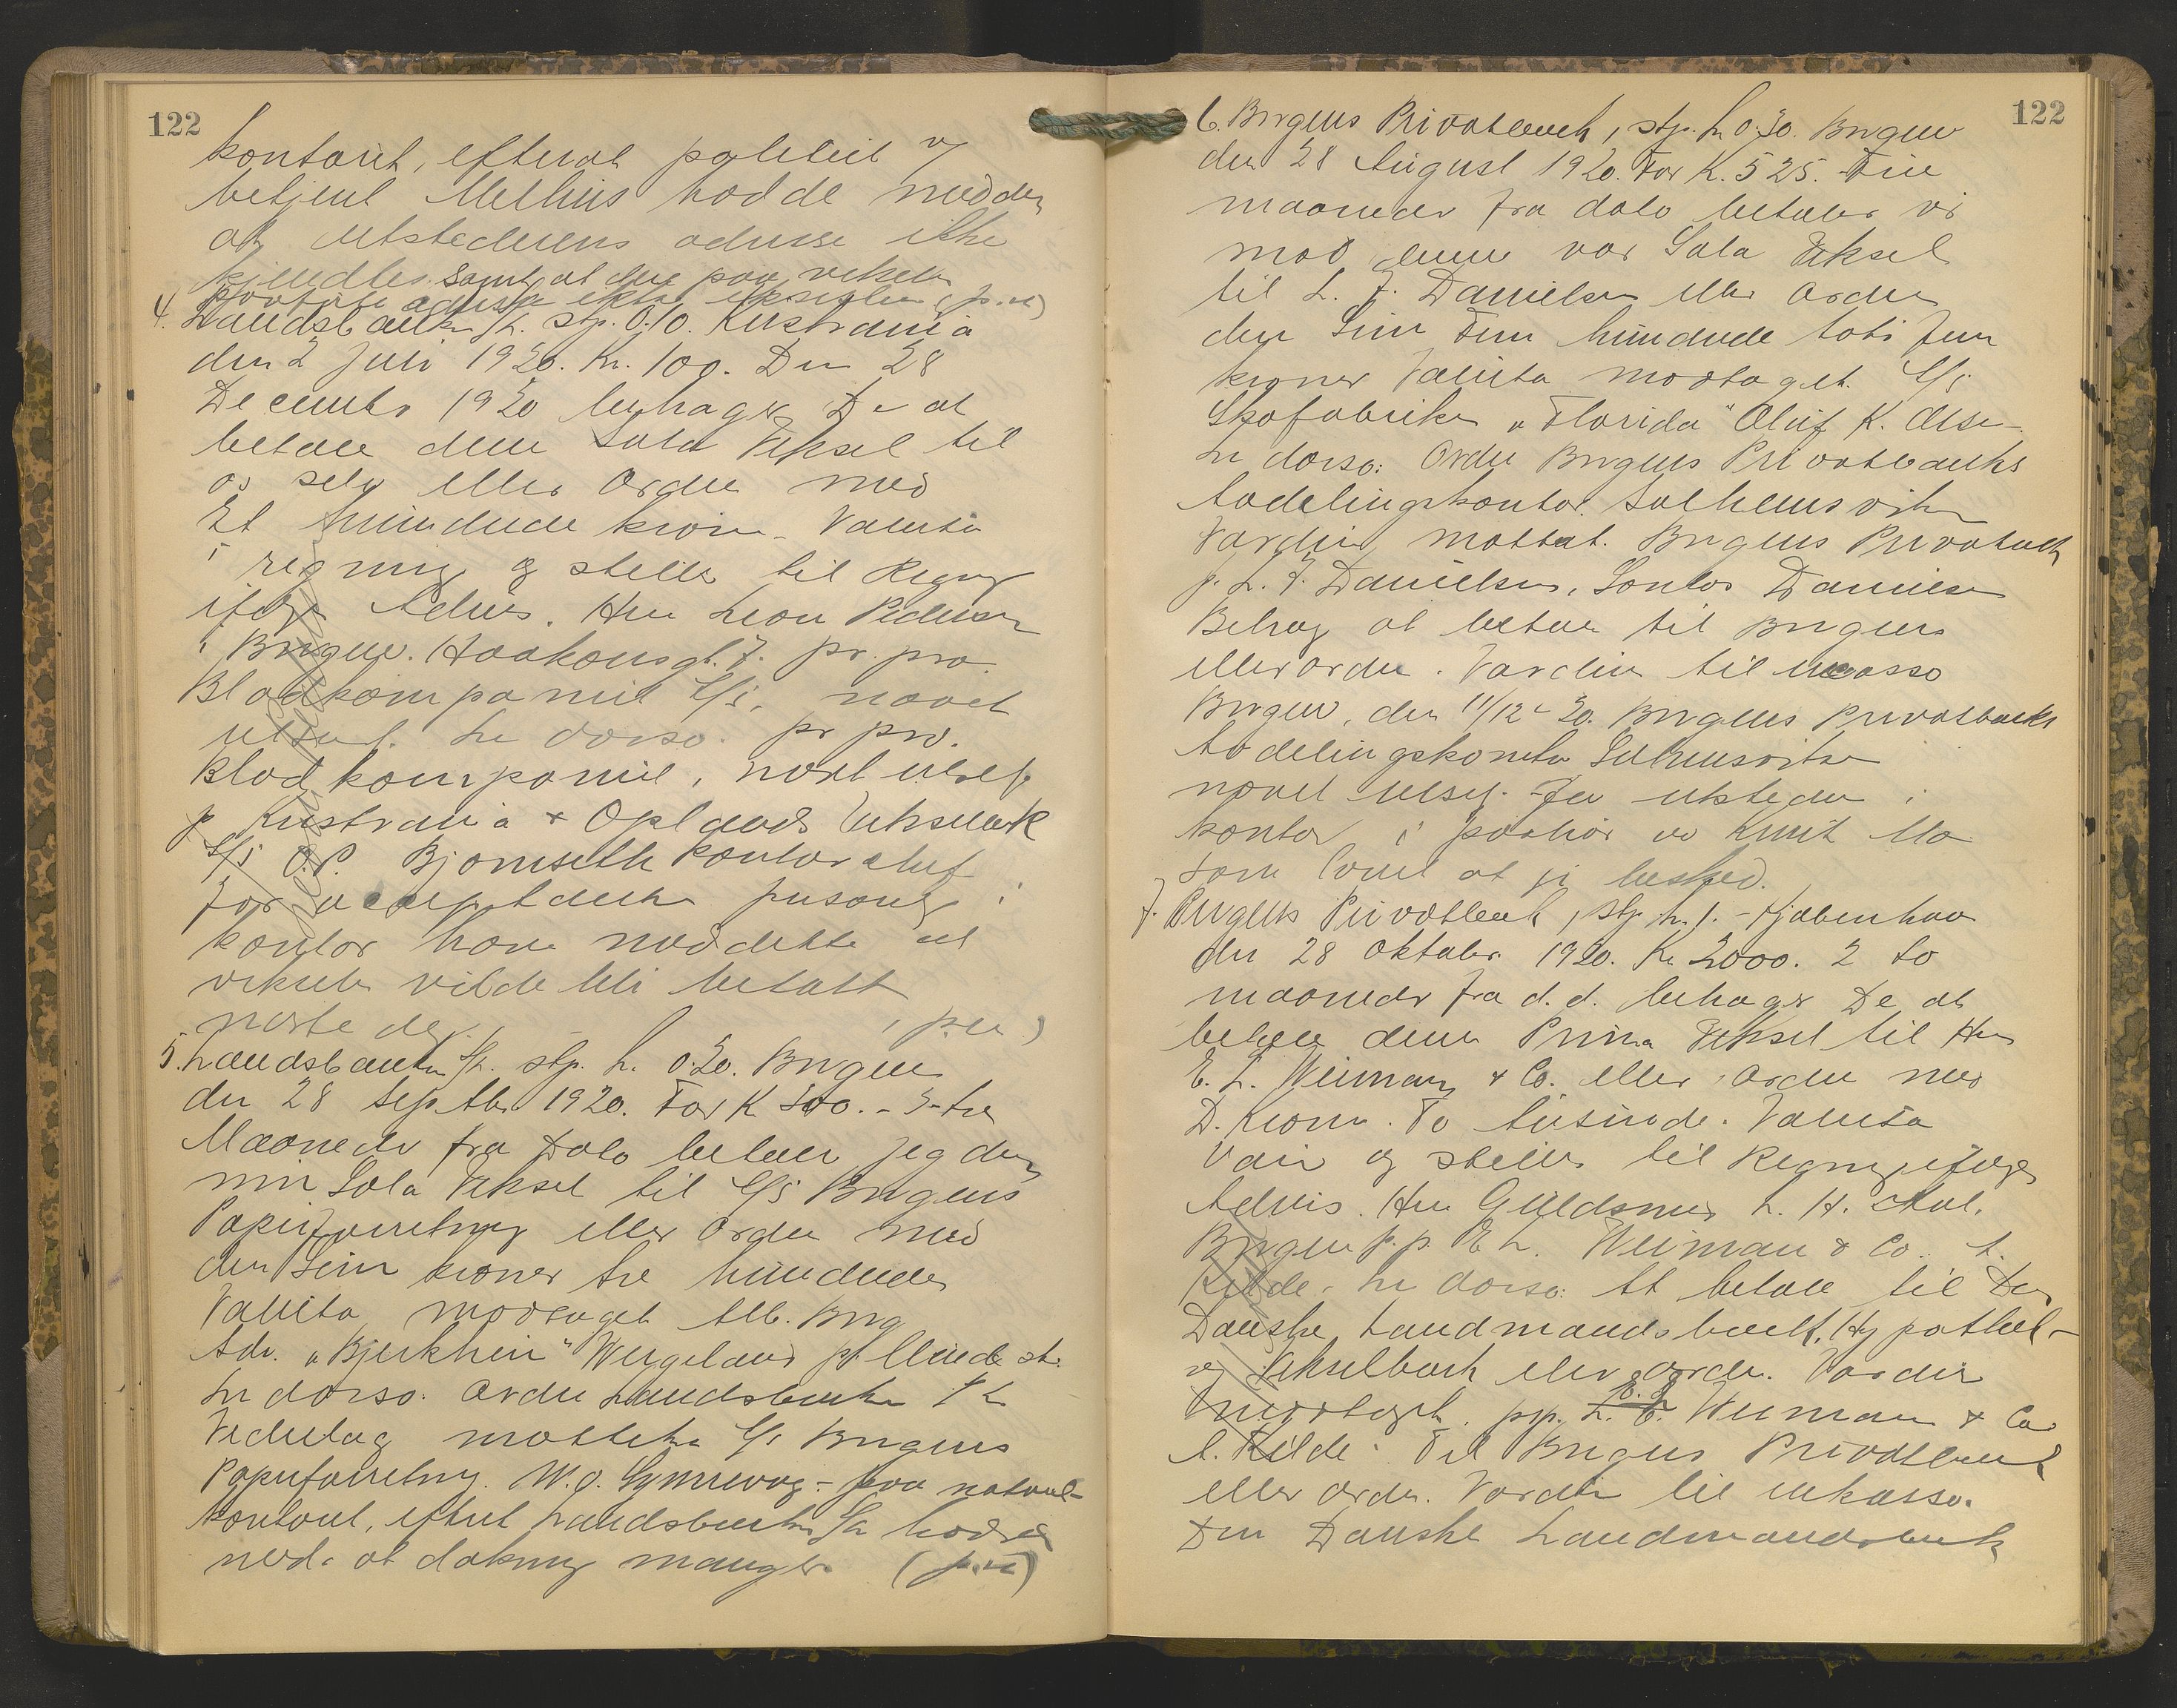 122
kontoret, efterat politiet v/
betjent Melhus hadde meddelt
at utstederens adresse ikke
kjendtes samt at den paa vekselen
paaførte adresse ikke eksisterer (p.n)
4. Landsbanken A/L. stp. 0.10. Kristiania
den 2 Juli 1920. Kr. 100. Den 28
December 1920 behager De at
betale denne Sola Veksel til
os selv eller Ordre med
Et hundrede kroner Valuta
i regning og stilles til Regning
ifølge Advis. Herr Leon Pedersen
i Bergen. Haakonsgt. 7. pr. pro.
Bladkompaniet A/S, navnet
utsat. In dorso. pr pro.
Bladkompaniet, navnet
p Kristiania & Oplands Vekselbank
A/S O.P. Bjørnseth kontorchef
For acceptanten personlig i
kontor hans meddelte at
vekselen vilde bli betalt
neste dag. (p.n)
5. Landsbanken A/L. stp. L. 0.30. Bergen
den 28 September 1920. For K 300.- 3-tre
Maaneder fra Dato betaler jeg denne
min Sola Veksel til A/S Bergens
Papirforretning eller Ordre med
den Sum kroner tre hundrede
Valuta modtaget Alb. Berg
Adr. "Bjerkheim" Wergeland pr Minde st.
In dorso: Ordre Landsbanken A/L
Vederlag mottatt A/S Bergens
Papirforretning. W.O. - paa notarial-
kontoret, efterat Landsbanken A/L hadde
medd. at dekning mangler. (p.n)
122
6. Bergens Privatbank, stp. L 0.30. Bergen
den 28 August 1920. For K. 525. Fire
maaneder fra dato betaler vi
mod denne vor Sola Veksel
til L. F. Danielsen eller Ordre
den Sum Fem hundrede toti fem
kroner Valuta modtaget. A/S
Skofabriken "Florida" Oluf K. Olsen.
In dorso: Ordre Bergens Privatbanks
Avdelingskontor Solheimsviken
Værdien mottat. Bergens Privatbank
p. L. F. Danielsen, Danielsen
Beløp at betale til Bergens
eller ordre. Værdien til incasso
Bergen, den 11/12-20. Bergens Privatbanks
Avdelingskontor Solheimsviken
navnet For utsteder i
kontor i paahør av Knut Mo
som lovet at gi besked.
7. Bergens Privatbank, stp. L. 1.- Kjøbenhavn
den 28 Oktober 1920. Kr 2000. 2 to
maaneder fra d.d. behager De at
betale denne Prima Veksel til Hrr
E. L. Weimann & Co. eller Ordre med
D. Kroner. To tusinde. Valuta
Vare og stilles til Regning ifølge
Advis. Herr Guldsmed L. H. Mol.
Bergen p.p. E L. Weimann & Co. A.
Kilde. In dorso: At betale til Den
Danske Landmandsbank, Hypothek-
og Vekselbank eller ordre. Værdien
modtaget. pp. E. L. Weimann & Co
A. Kilde. Til Bergens Privatbank
eller ordre. Værdien til inkasso.
Den Danske Landmandsbank